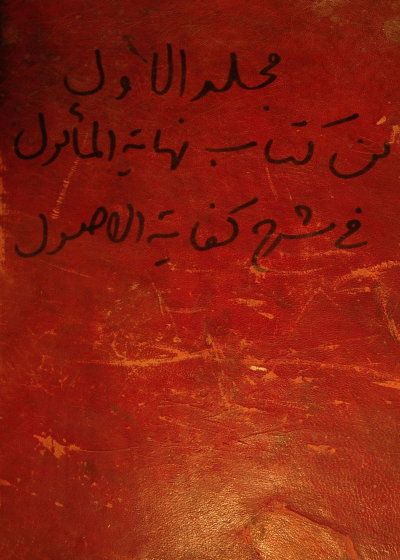 مجلد الاول
من كتاب نهاية المأمول
في شرح كفاية الاصول